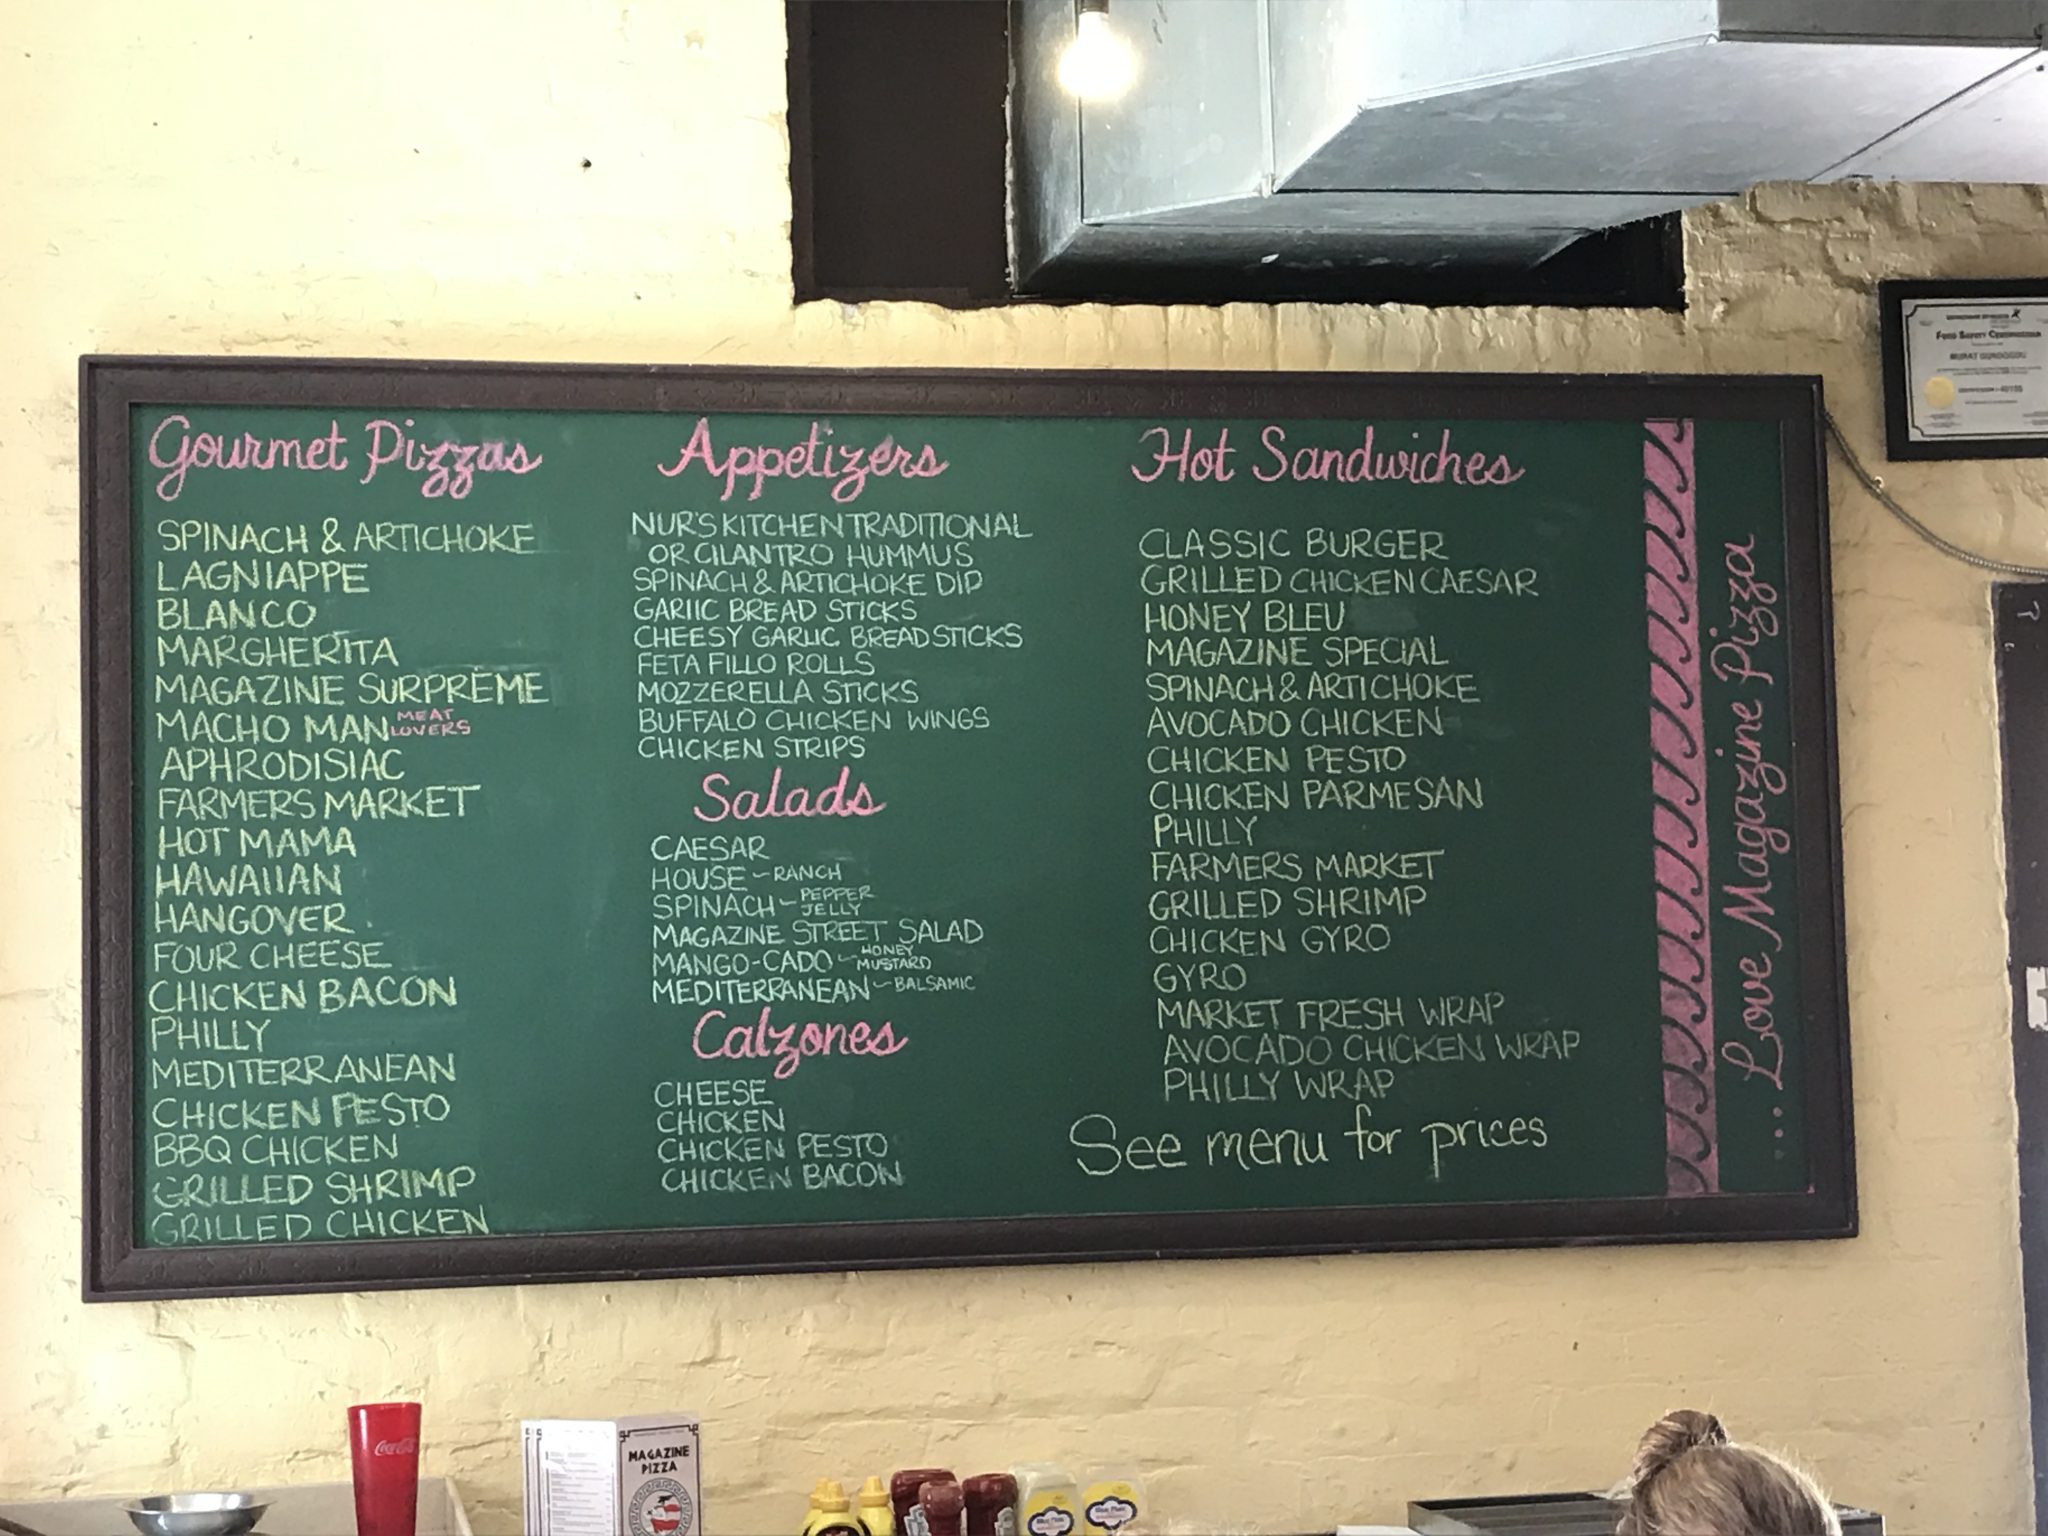 Gourmet Pizzas
SPINACH & ARTICHOKE
LAGNIAPPE
BLANCO
MARGHERITA
MAGAZINE SURPRÈME
MACHO MAN MEAT LOVERS
APHRODISIAC
FARMERS MARKET
HOT MAMA
HAWAIIAN
HANGOVER
FOUR CHEESE
CHICKEN BACON
PHILLY
MEDITERRANEAN
CHICKEN PESTO
BBQ CHICKEN
GRILLED SHRIMP
GRILLED CHICKEN
Appetizers
NUR'S KITCHEN TRADITIONAL
OR CILANTRO HUMMUS
SPINACH & ARTICHOKE DIP
GARLIC BREAD STICKS
CHEESY GARLIC BREAD STICKS
FETA FILLO ROLLS
MOZZERELLA STICKS
BUFFALO CHICKEN WINGS
CHICKEN STRIPS
Salads
CAESAR
HOUSE ~ RANCH
SPINACH ~ PEPPER JELLY
MAGAZINE STREET SALAD
MANGO-CADO ~ HONEY MUSTARD
MEDITERRANEAN ~ BALSAMIC
Calzones
CHEESE
CHICKEN
CHICKEN PESTO
CHICKEN BACON
Hot Sandwiches
CLASSIC BURGER
GRILLED CHICKEN CAESAR
HONEY BLEU
MAGAZINE SPECIAL
SPINACH & ARTICHOKE
AVOCADO CHICKEN
CHICKEN PESTO
CHICKEN PARMESAN
PHILLY
FARMERS MARKET
GRILLED SHRIMP
CHICKEN GYRO
GYRO
MARKET FRESH WRAP
AVOCADO CHICKEN WRAP
PHILLY WRAP
See menu for prices
....Love Magazine Pizza
FOOD SAFETY CERTIFICATION
Coca-Cola
MAGAZINE
PIZZA
Blue Plate
Blue Plate